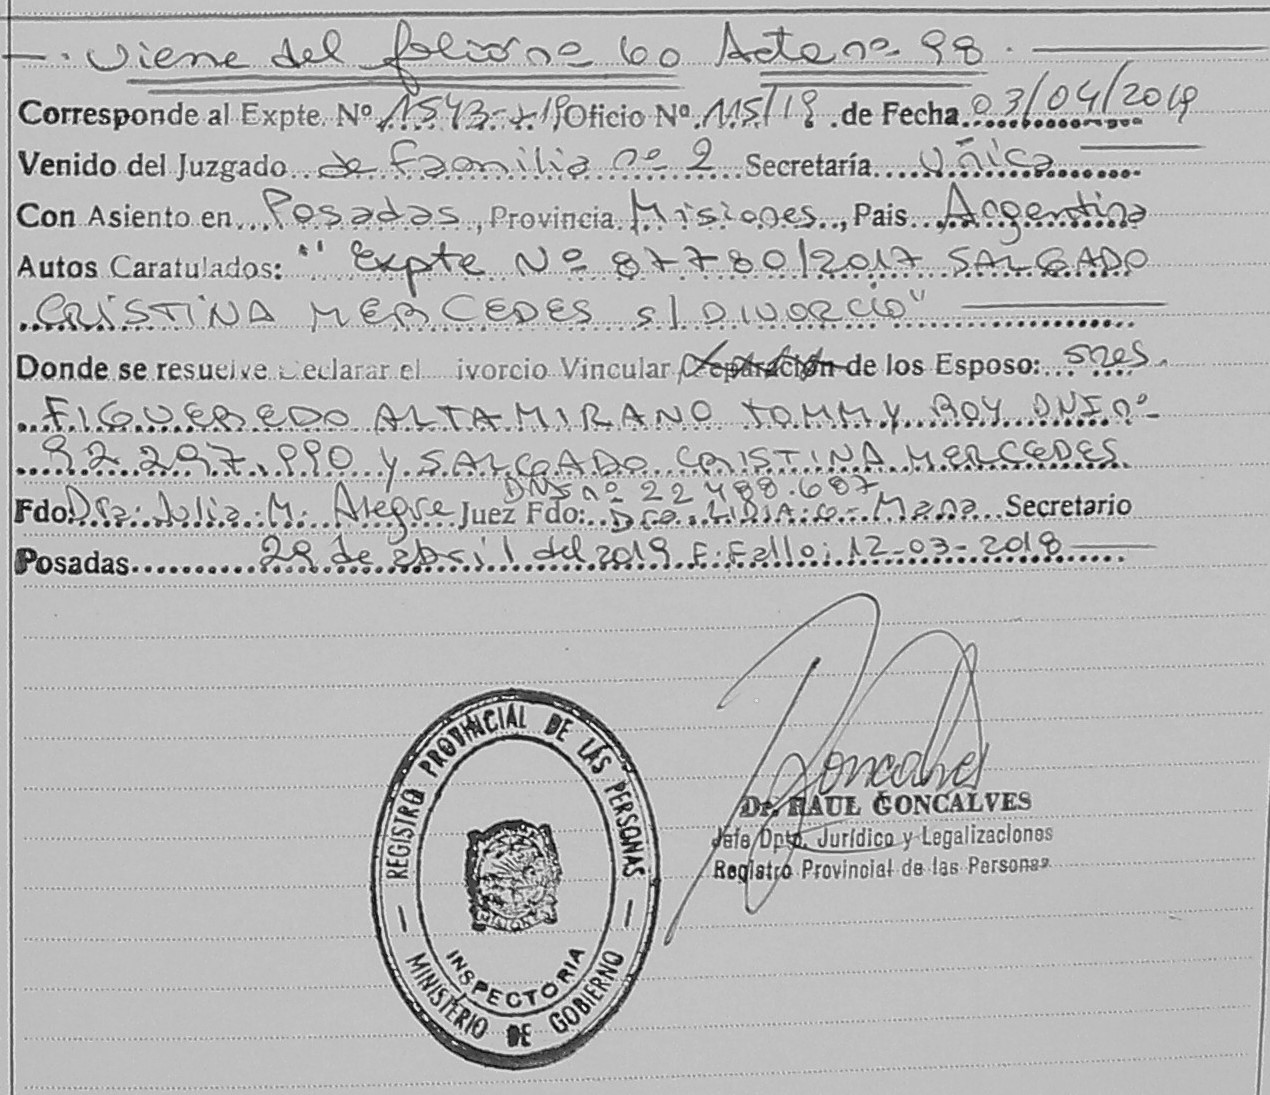 Viene del folio nº 60 Acta nº 98
Corresponde al Expte. Nº 1543-+/19 Oficio Nº 115/19 de Fecha 03/04/2019
Venido del Juzgado de Familia nº 2 Secretaría única
Con Asiento en Posadas, Provincia Misiones, Pais Argentina
Autos Caratulados: "Expte Nº 87780/2017 SALGADO
CRISTINA MERCEDES s/DIVORCIO"
Donde se resuelve Declarar el ivorcio Vincular Separación de los Esposo: sres.
FIGUEREDO ALTAMIRANO TOMMY ROY DNI nº
92.297.990 y SALGADO CRISTINA MERCEDES
DNI nº 22488.687
Fdo: Dra. Julia M. Alegre Juez Fdo: Dra. LIDIA G. Secretario
Posadas 29 de abril del 2019 F. Fallo: 12-03-2018
Goncalves
Dr. RAUL GONCALVES
Jefe Dpto. Jurídico y Legalizaciones
Registro Provincial de las Personas
REGISTRO PROVINCIAL DE LAS PERSONAS
MISIONES
INSPECTORIA
MINISTERIO DE GOBIERNO